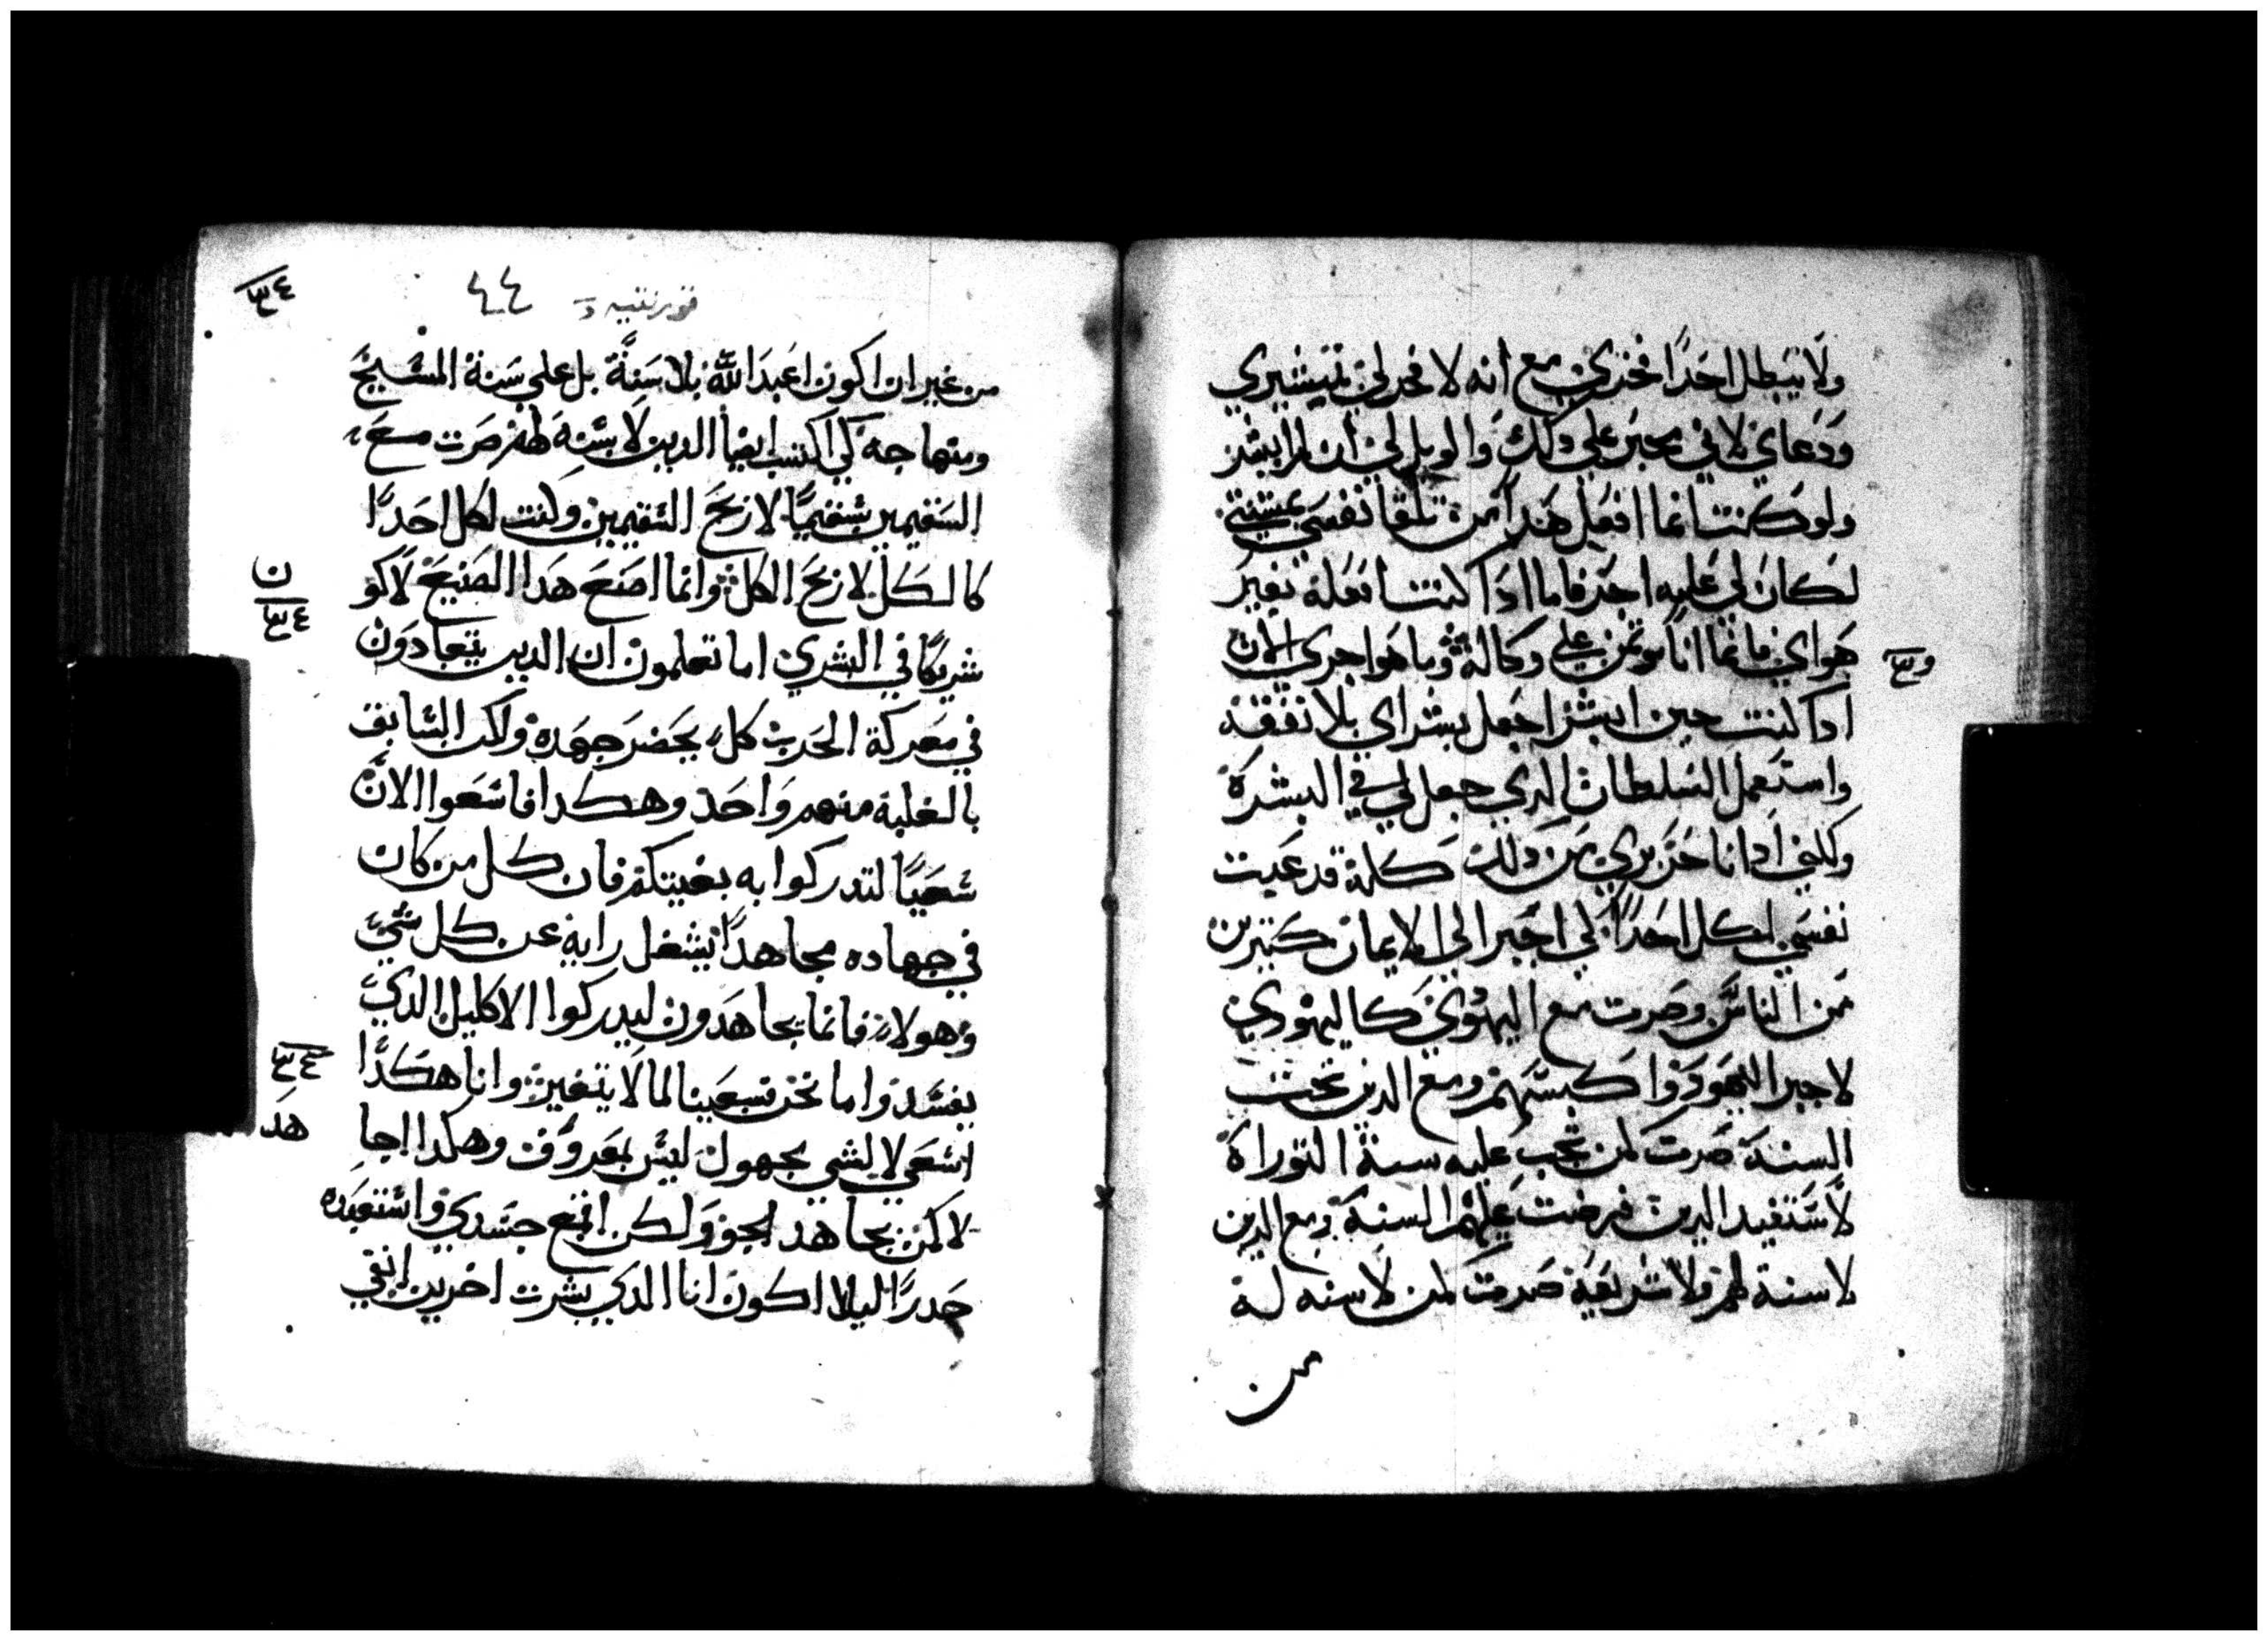 ولا يبطل احدًا فخري مع انه لا فخر لي بتبشيري
ودعاي لاني مجبر علي ذلك والويل لي ان لم ابشر
ولو كنت انما افعل هدا من تلقا نفسي بمشيتي
لكان لي عليه اجر فاما ادا كنت افعله بغير
هواي فانما انا موتمن علي وكالة وما هو اجري الان
ادا كنت حين ابشر اجعل بشراي بلا نفقة
واستعمل السلطان الدي جعل لي في البشرة
ولكني ادا انا حر بري من دلك كله قد عبدت
نفسي لكل احدًا كي اجبر الي الايمان كتيرين
من الناس وصرت مع اليهودي كاليهودي
لاجبر اليهود واكسبهم ومع الدين تحت
السنة صرت كمن تجب عليه سنة التوراة
لاستفيد الدين فرضت عليهم السنة ومع الدين
لا سنة لهم ولا شريعة صرت كمن لا سنه له
من
و٣
٣٤
قورنتيه
٤٤
من غير ان اكون اعبد الله بلا سنة بل علي سنة المسيح
ومنهاجه كي اكتسب ايضا الدين لا سنه لهم صرت مع
السقيمين سقيمًا لاربح السقيمين وكنت لكل احدًا
كالكل لاربح الكل وانما اصنع هدا الصنيع لاكو
ن
٣٤
شريكًا في البشري اما تعلمون ان الدين يتعادون
في معركة الحرب كل يحضر جهده ولكن السابق
بالغلبة منهم واحد وهكدا فاسعوا الان
سعيًا لتدركوا به بغيتكم فان كل من كان
في جهاده مجاهدًا يشغل رايه عن كل شي
وهولاء فانما يجاهدون ليدركوا الاكليل الدي
يفسد واما نحن فسعينا لما لا يتغير وانا هكدا
٣٤
اسعي لا لشي مجهول ليس بمعروف وهكدا اجا
هد
لا كمن يجاهد الجو ولكن اقمع جسدي واستعبده
حدرًا ليلا اكون انا الدي بشرت اخرين انتقي